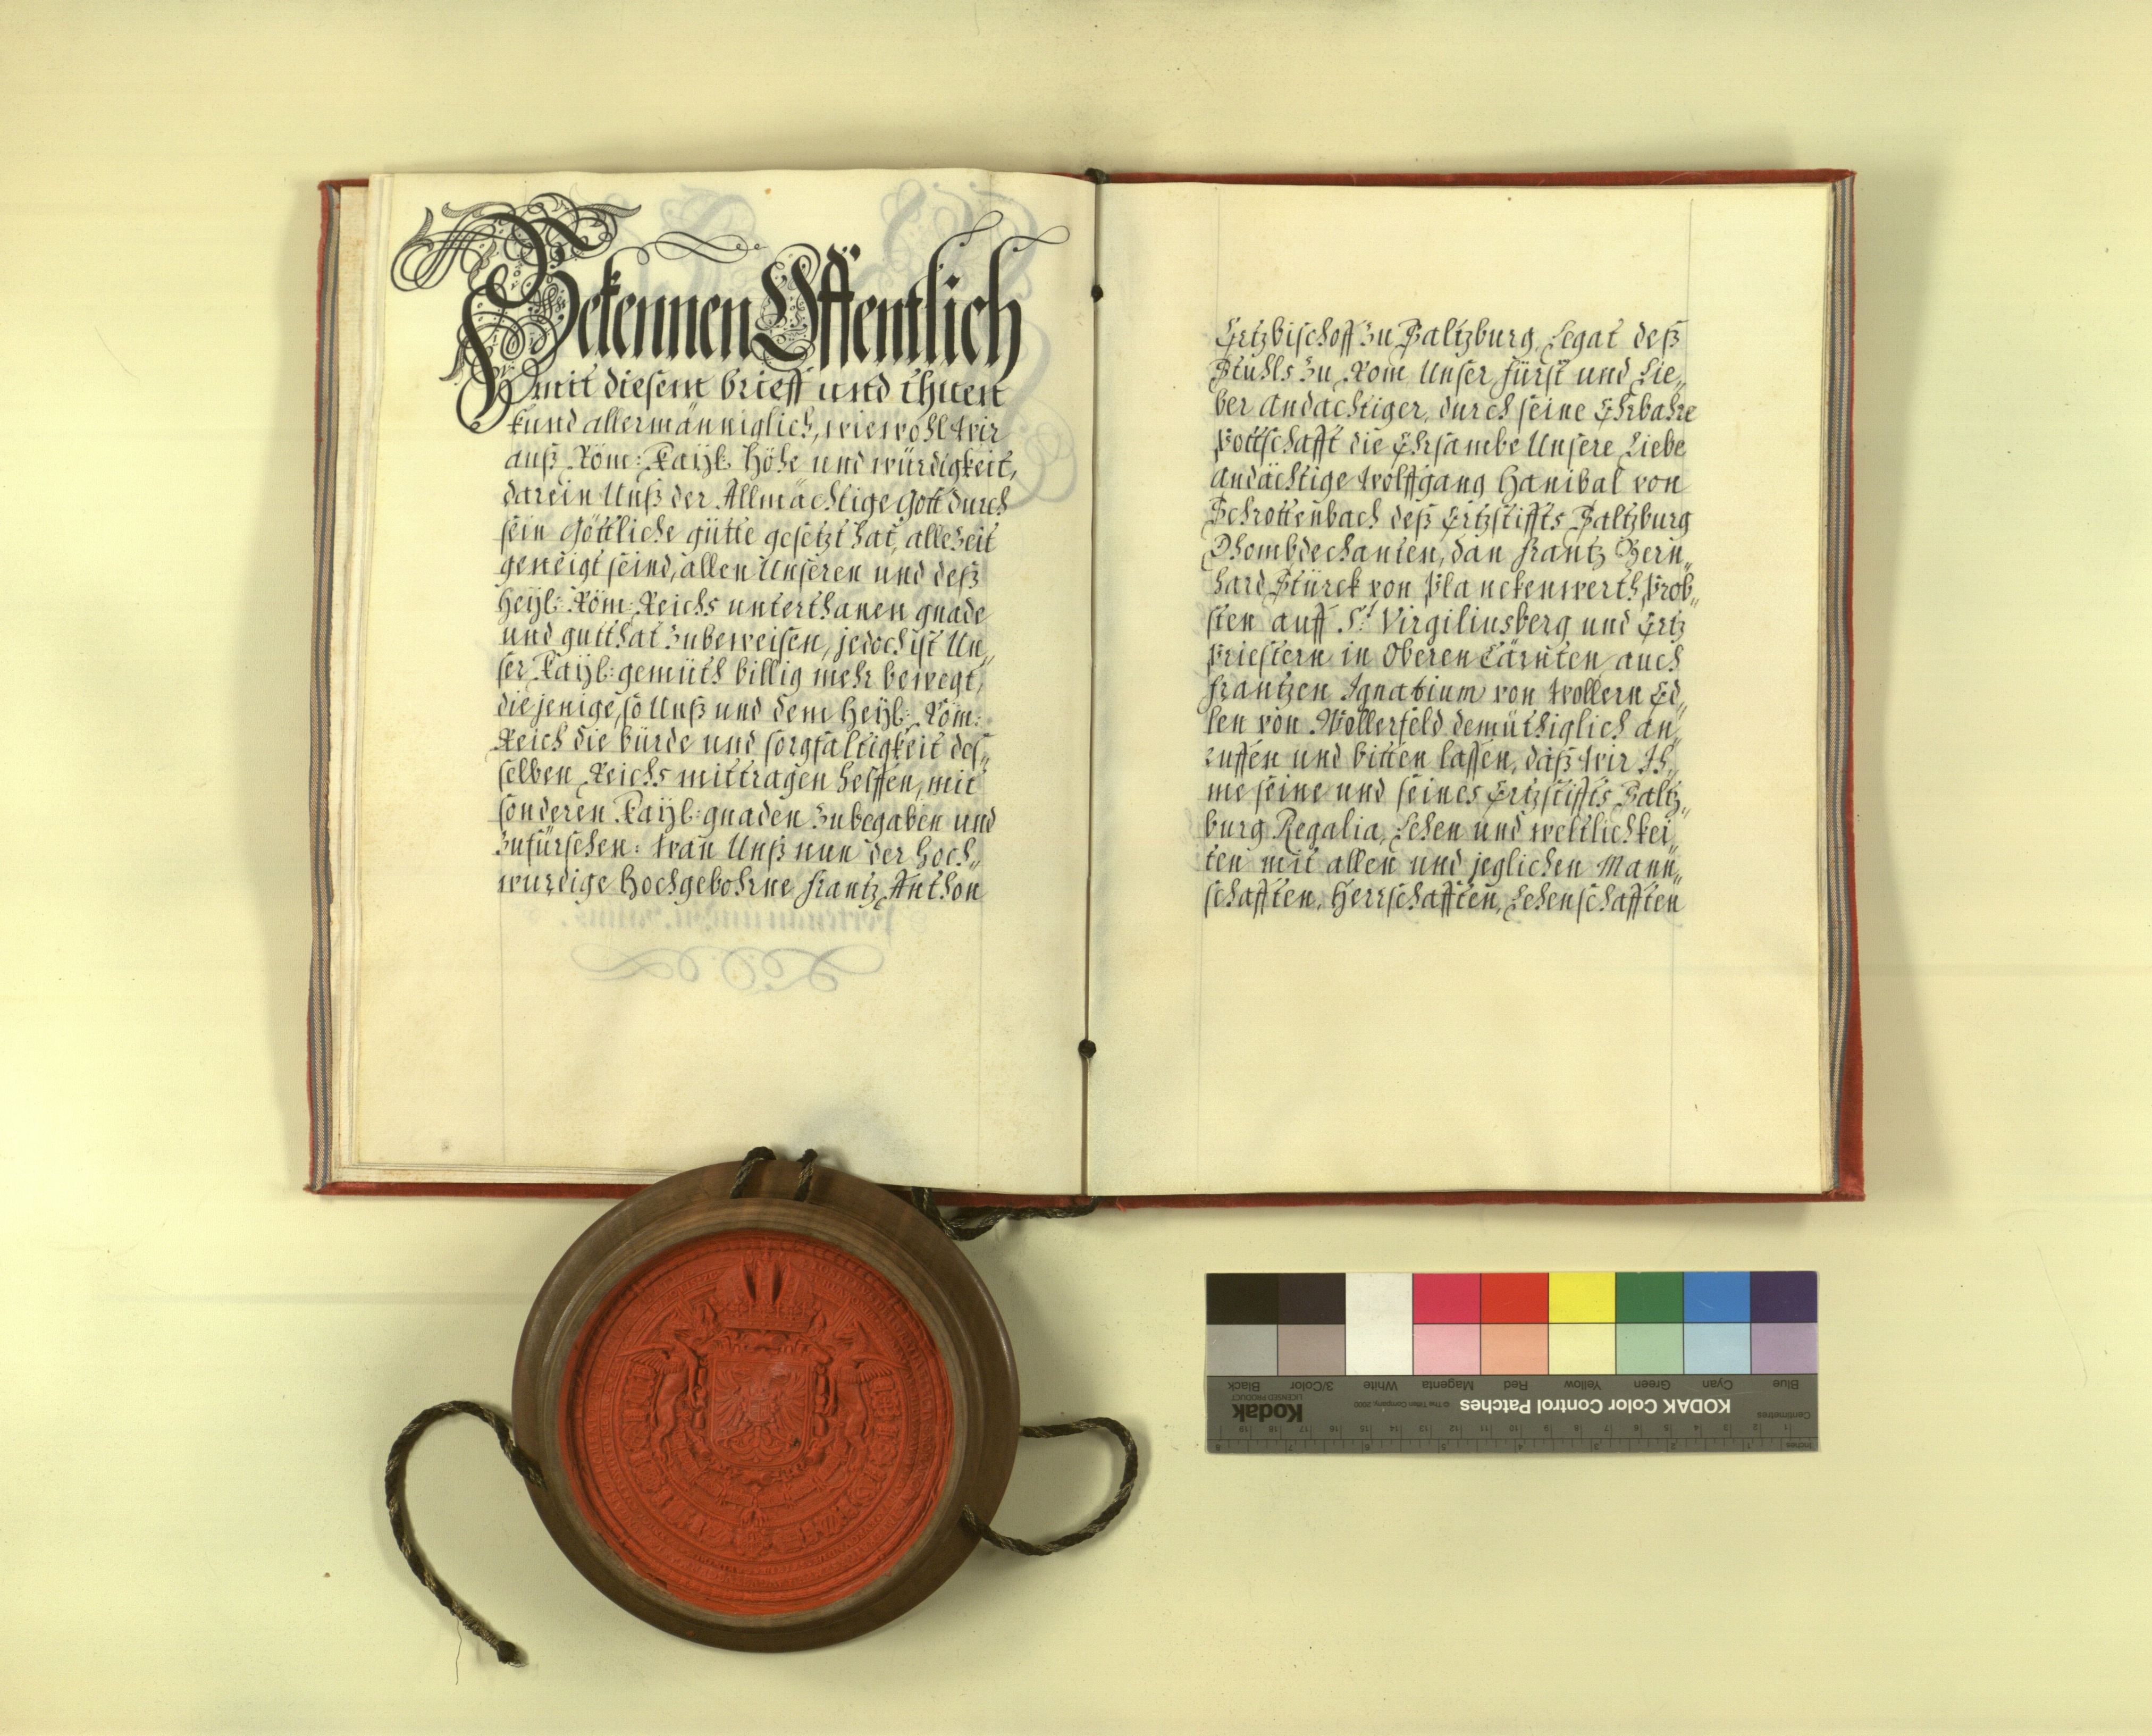 Bekennen Öffentlich
mit diesem brieff und thuen
kund allermänniglich, wiewohl wir
auß Röm: Kayl: Höhe und würdigkeit,
darein Unß der Allmächtige Gott durch
sein Göttliche gütte gesetzt hat, allezeit
geneigt seind, allen Unseren und deß
Heyl: Röm: Reichs unterthanen gnade
und gutthat zubeweisen, jedoch ist Un„
ser Kayl: gemüth billig mehr bewegt,
die jenige, so Unß und dem Heyl: Röm:
Reich die bürde und sorgfaltigkeit des„
selben Reichs mittragen helffen, mit
sonderen Kayl: gnaden zubegaben und
zufürsehen: wan Unß nun der Hoch„
wurdige Hochgebohrne Frantz Anthon
Ertzbischoff zu Saltzburg, Legat deß
Stuhls zu Rom Unser fürst und Lie„
ber Andachtiger, durch seine Ehrbahre
Bottschafft die Ehrsambe Unsere Liebe
Andächtige Wolffgang Hanibal von
Schrottenbach deß Ertzstiffts Saltzburg
Dhombdechanten, dan Frantz Bern„
hard Stürck von Planckenwerth, Prob„
sten auff St. Virgiliusberg und Ertz
Priestern in Oberen Cärnten, auch
Frantzen Ignatium von Wollern Ed„
len von Wollersfeld demüthiglich an„
ruffen und bitten lassen, daß wir Ih„
me seine und seines Ertzstiffts Saltz„
burg Regalia, Lehen und weltlichkei„
ten mit allen und jeglichen Mann„
schafften, Herrschafften, Lehenschafften
Blue Cyan Green Yellow Red Magenta White 3/Color Black
KODAK Color Control Patches © The Tiffen Company, 2000 Kodak LICENSED PRODUCT
Centimetres
1 2 3 4 5 6 7 8 9 10 11 12 13 14 15 16 17 18 19
Inches 1 2 3 4 5 6 7 8